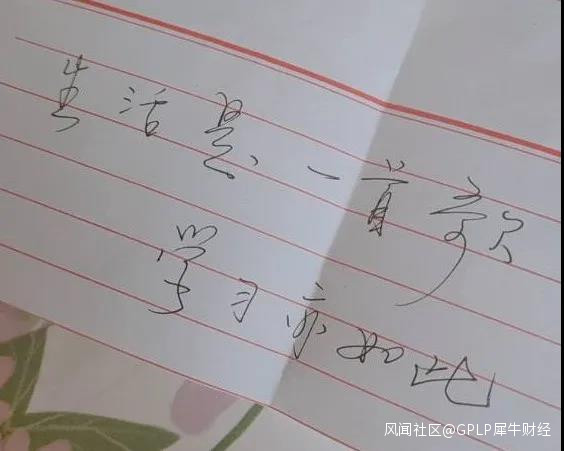 生活是一首歌
学习亦如此
风闻社区@GPLP犀牛财经